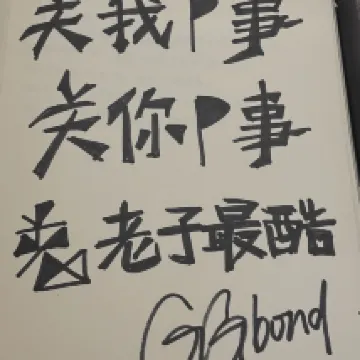 关我P事
关你P事
老子最酷
GGbond